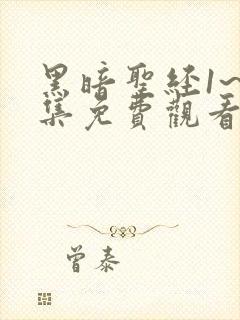 黑暗聖経1~
集免費觀看
曾泰